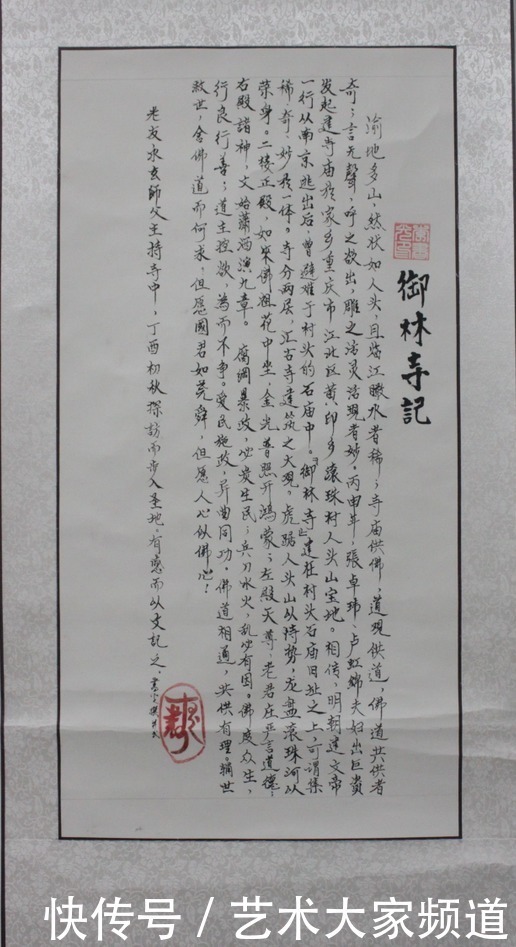 御林寺記
渝地多山，然状如人头，且临江瞰水者稀；寺庙供佛，道观供道，佛道共供者
奇；言无聲，呼之欲出，雕之活灵活现者妙。丙申年，張卓瑋、卢虹锦夫妇出巨资
发起建寺庙於家乡重庆市江北区黄印乡滚珠村人头山宝地。相传，明朝建文帝
一行从南京逃出后，曾避难于村头的石庙中。『御林寺』建在村头石庙旧址之上，可谓集
稀、奇、妙於一体。寺分两层，汇古寺建筑之大观。虎踞人头山以特势，龙盘滚珠河以
荣身。二楼正殿，如来佛祖花中坐，金光普照开鸿蒙；左殿天尊，老君庄严言道德；
右殿諸神，文始瀟洒演九章。腐綱暴政，必发生民；兵刀水火，乱必有因。佛度众生，
行良行善；道主控欲，為而不争。爱民施政，异曲同功。佛道相通，共供有理。輔世
救世，舍佛道而何求，但愿國君如尧舜，但愿人心似佛心！
老友永玄師父主持寺中，丁酉初秋探訪而步入圣地，有感而以文記之
快传号／艺术大家频道